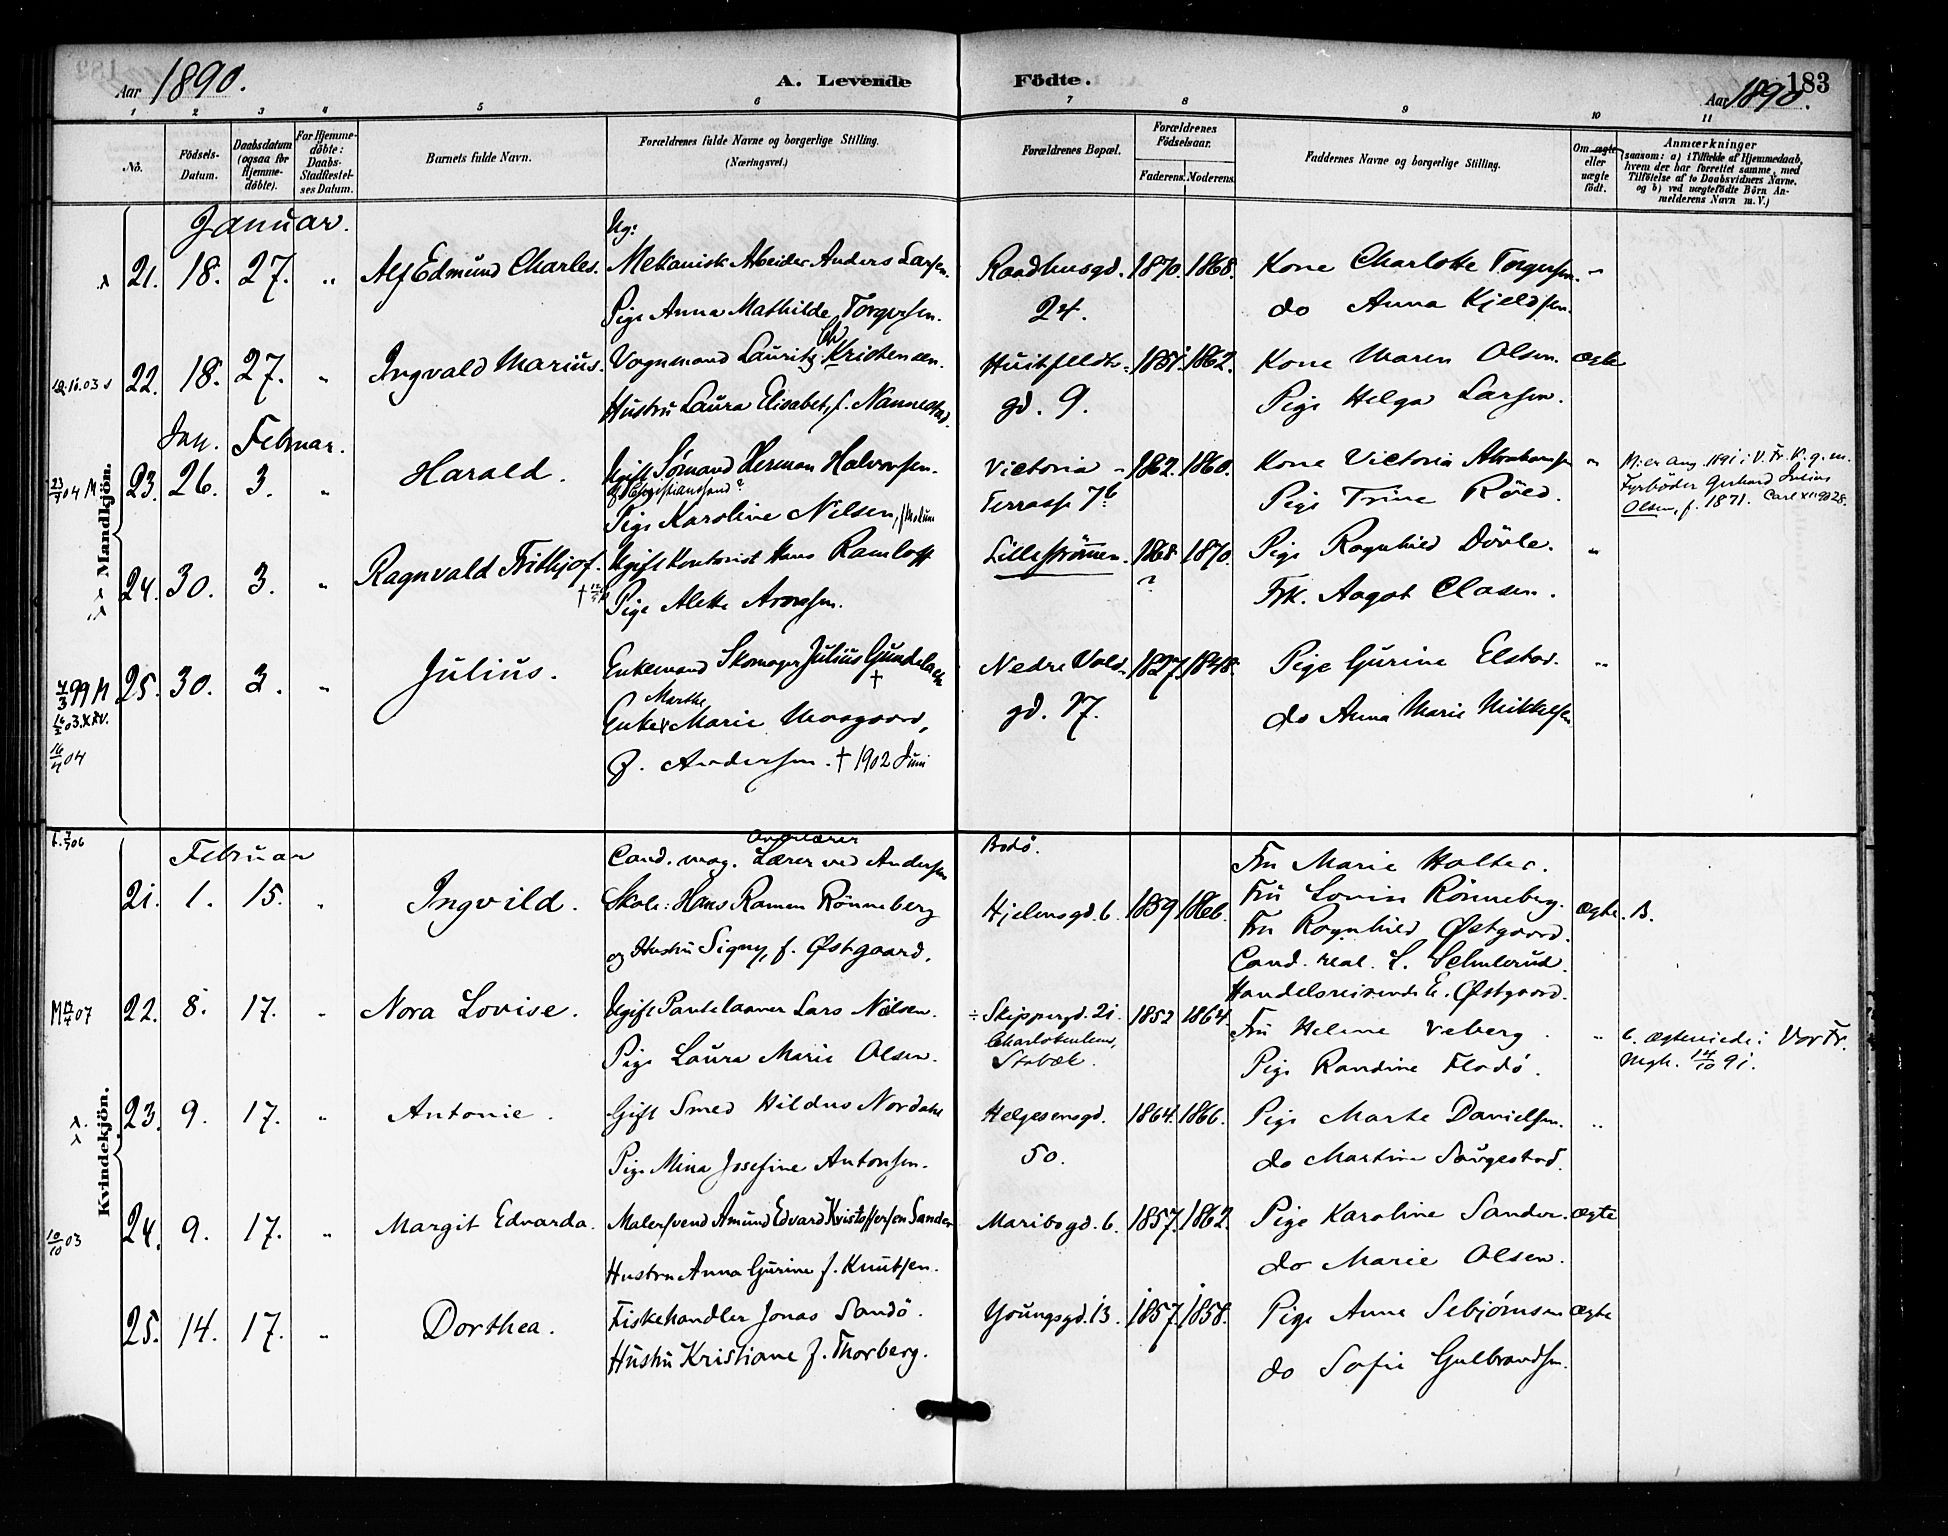 Aar 1890. A. Levende Födte. Aar 1890. 183
1 2 3 4 5 6 7 8 9 10 11
No. Födsels-Datum. Daabsdatum (ogsaa for Hjemme-döbte). For Hjemme-döbte: Daabs-Stadfæstel-ses Datum. Barnets fulde Navn. Forældrenes fulde Navne og borgerlige Stilling. (Næringsvei.) Forældrenes Bopæl. Forældrenes Födselsaar. Faderens. Moderens. Faddernes Navne og borgerlige Stilling. Om ægte eller uægte födt. Anmærkninger
(saasom: a) i Tilfælde af Hjemmedaab, hvem der har forrettet samme, med Tilföielse af to Daabsvidners Navne, og b) ved uægtefödte Börn An-melderens Navn m. V.)
Mandkjön.
Januar. Ug:
21. 18. 27. " Alf Edmund Charles. Mekanisk Arbeider Anders Larsen. Raadhusgd. 1870. 1868. Kone Charlotte Torgersen. "
Pige Anna Mathilde Torgersen. 24. do Anna Kjeldsen.
22. 18. 27. " Ingvald Marius. Vognmand Lauritz Chr Kristensen. Huitfeldts- 1851. 1862. Kone Maren Olsen. ægte
Hustru Laura Elisabet, f. Nannestad. gd. 9. Pige Helga Larsen.
Jan. Februar.
23. 26. 3. " Harald. Ugift Sømand Herman Halvorsen. Victoria- 1862. 1860. Kone Victoria Abrahamsen "
af Christianssand?
Pige Karoline Nilsen, Terrasse 7b Pige Trine Röed.
Fyrbøder Gerhard Julius
Olsen, f. 1871.
24. 30. 3. " Ragnvald Frithjof. Ugift Kontorist Hans Ramloff Lillestrømmen. 1868 ? 1870. Pige Ragnhild Dövle. "
Pige Alette Aronsen. Frk. Aagot Clasen.
25. 30. 3. " Julius. Enkemand Skomager Julius Gundelach † Nedre Vold- 1827. 1848. Pige Gurine Elstad. "
Marthe
Enke Marie Moagaard, gd. 17. do Anna Marie Mikkelsen
f. Andersen. † 1902 Juni
Kvindekjön.
Februar Cand. mag. Lærer ved Andersens Bodö. Fru Marie Holter.
21. 1. 15. " Ingvild. Skole: Hans Ramen Rönneberg Hjelmsgd. 6. 1859 1866. Fru Lovin Rönneberg. ægte. B.
Fru Ragnhild Østgaard.
og Hustru Signy, f. Østgaard. Cand. real. L. Schulerud.
Handelsreisende E. Østgaard.
22. 8. 17. " Nora Lovise. Ugift Pantelaaner Lars Nilsen. ÷ Skippergd. 21. 1852 1864. Fru Helene Veberg. "
Charlottenlund,
Pige Laura Marie Olsen. Stabæk. Pige Randine Flodö.
23. 9. 17. " Antonie. Gift Smed Hildus Nordahl Helgesensgd. 1864. 1866. Pige Marte Danielsen. "
Pige Mina Josefine Antonsen. 50. do Martine Saugestad.
24. 9. 17. " Margit Edvarda. Malersvend Amund Edvard Kristoffersen Sander Maribogd. 6. 1857. 1862. Pige Karoline Sander. ægte
Hustru Anna Gurine f. Knutsen. do Marie Olsen.
25. 14. 17. " Dorthea. Fiskehandler Jonas Sandö. Youngsgd. 13. 1857. 1858. Pige Anna Sebjørnsen ægte
Hustru Kristiane f. Thorberg. do Sofie Gulbrandsen.